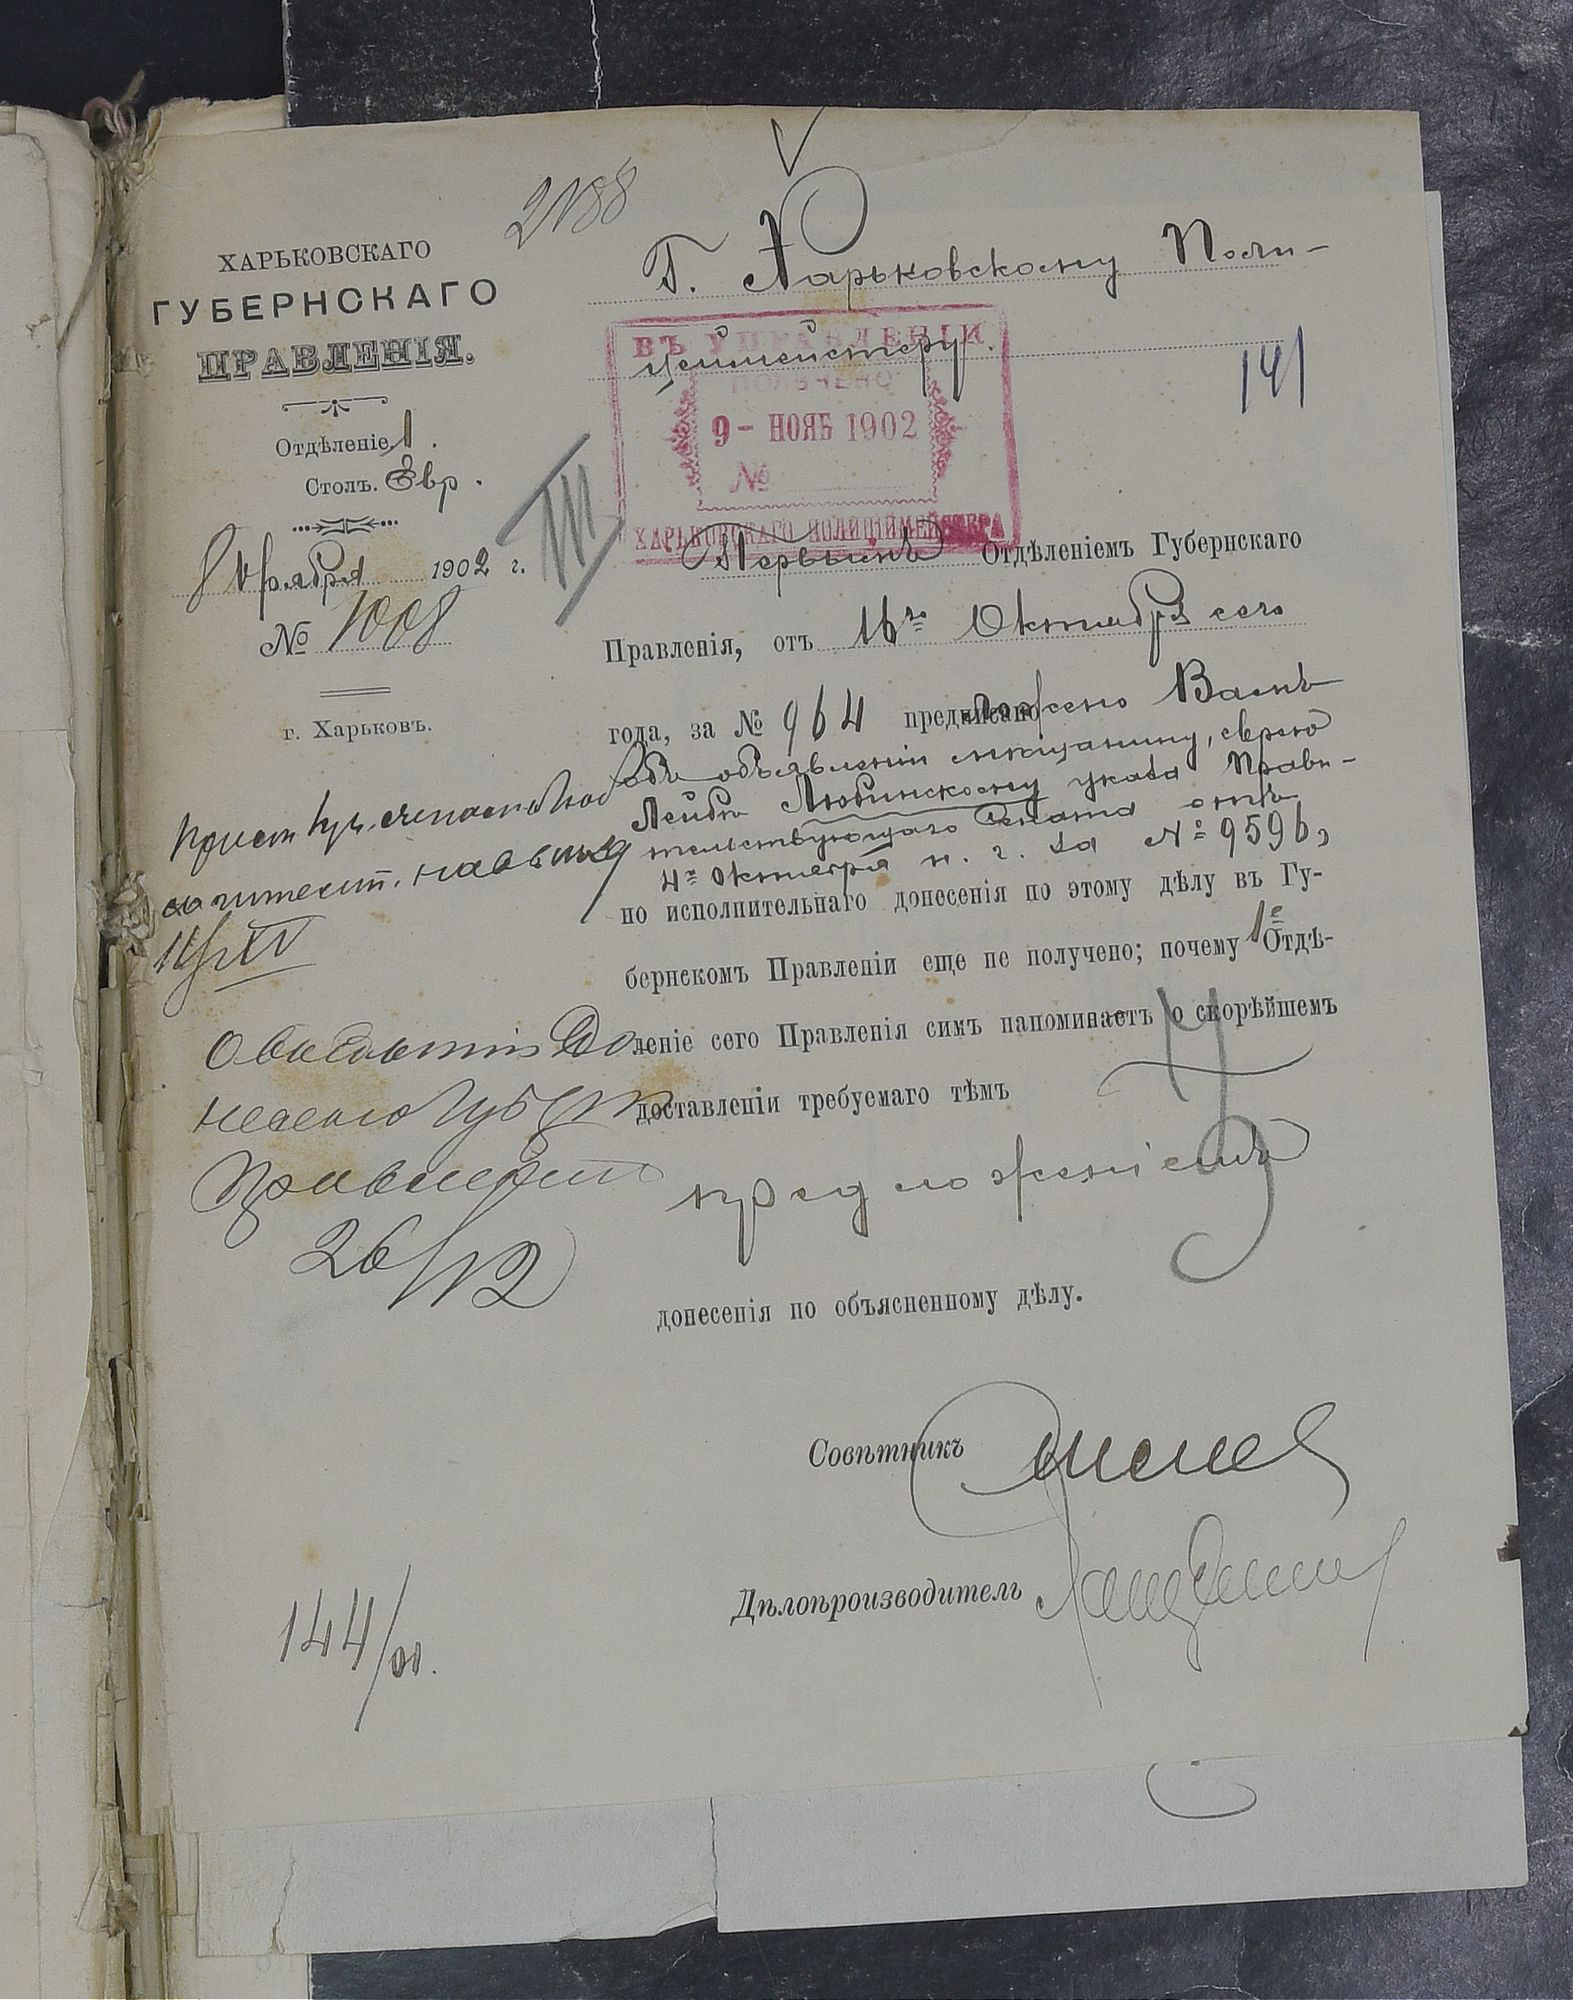 2188
ХАРЬКОВСКАГО
ГУБЕРНСКАГО
ПРАВЛЕНІЯ.
Отдѣленіе 1.
Столъ. Евр.
8 Ноября 1902 г.
№ 1008
г. Харьковъ.
Г. Харьковскому Поли-
цеймейстеру.
141
ВЪ УПРАВЛЕНІИ
ПОЛУЧЕНО
9 - НОЯБ 1902
№
ХАРЬКОВСКАГО ПОЛИЦІЙМЕЙСТЕРА
III
Первымъ Отдѣленіемъ Губернскаго
Правленія, отъ 16го Октября сего
года, за № 964 предложено Вамъ
объ объявленіи мѣщанину, еврею
Лейбѣ Любинскому указа Прави-
тельствующаго Сената отъ
4го Октября н. г. за № 9596,
но исполнительнаго донесенія по этому дѣлу въ Гу-
бернскомъ Правленіи еще не получено; почему 1е Отдѣ-
леніе сего Правленія симъ напоминаетъ о скорѣйшемъ
доставленіи требуемаго тѣмъ
предложеніемъ
донесенія по объясненному дѣлу.
Совѣтникъ
Дѣлопроизводитель
жительст.
11/XI
Правленію
26/XI 2
144/00.